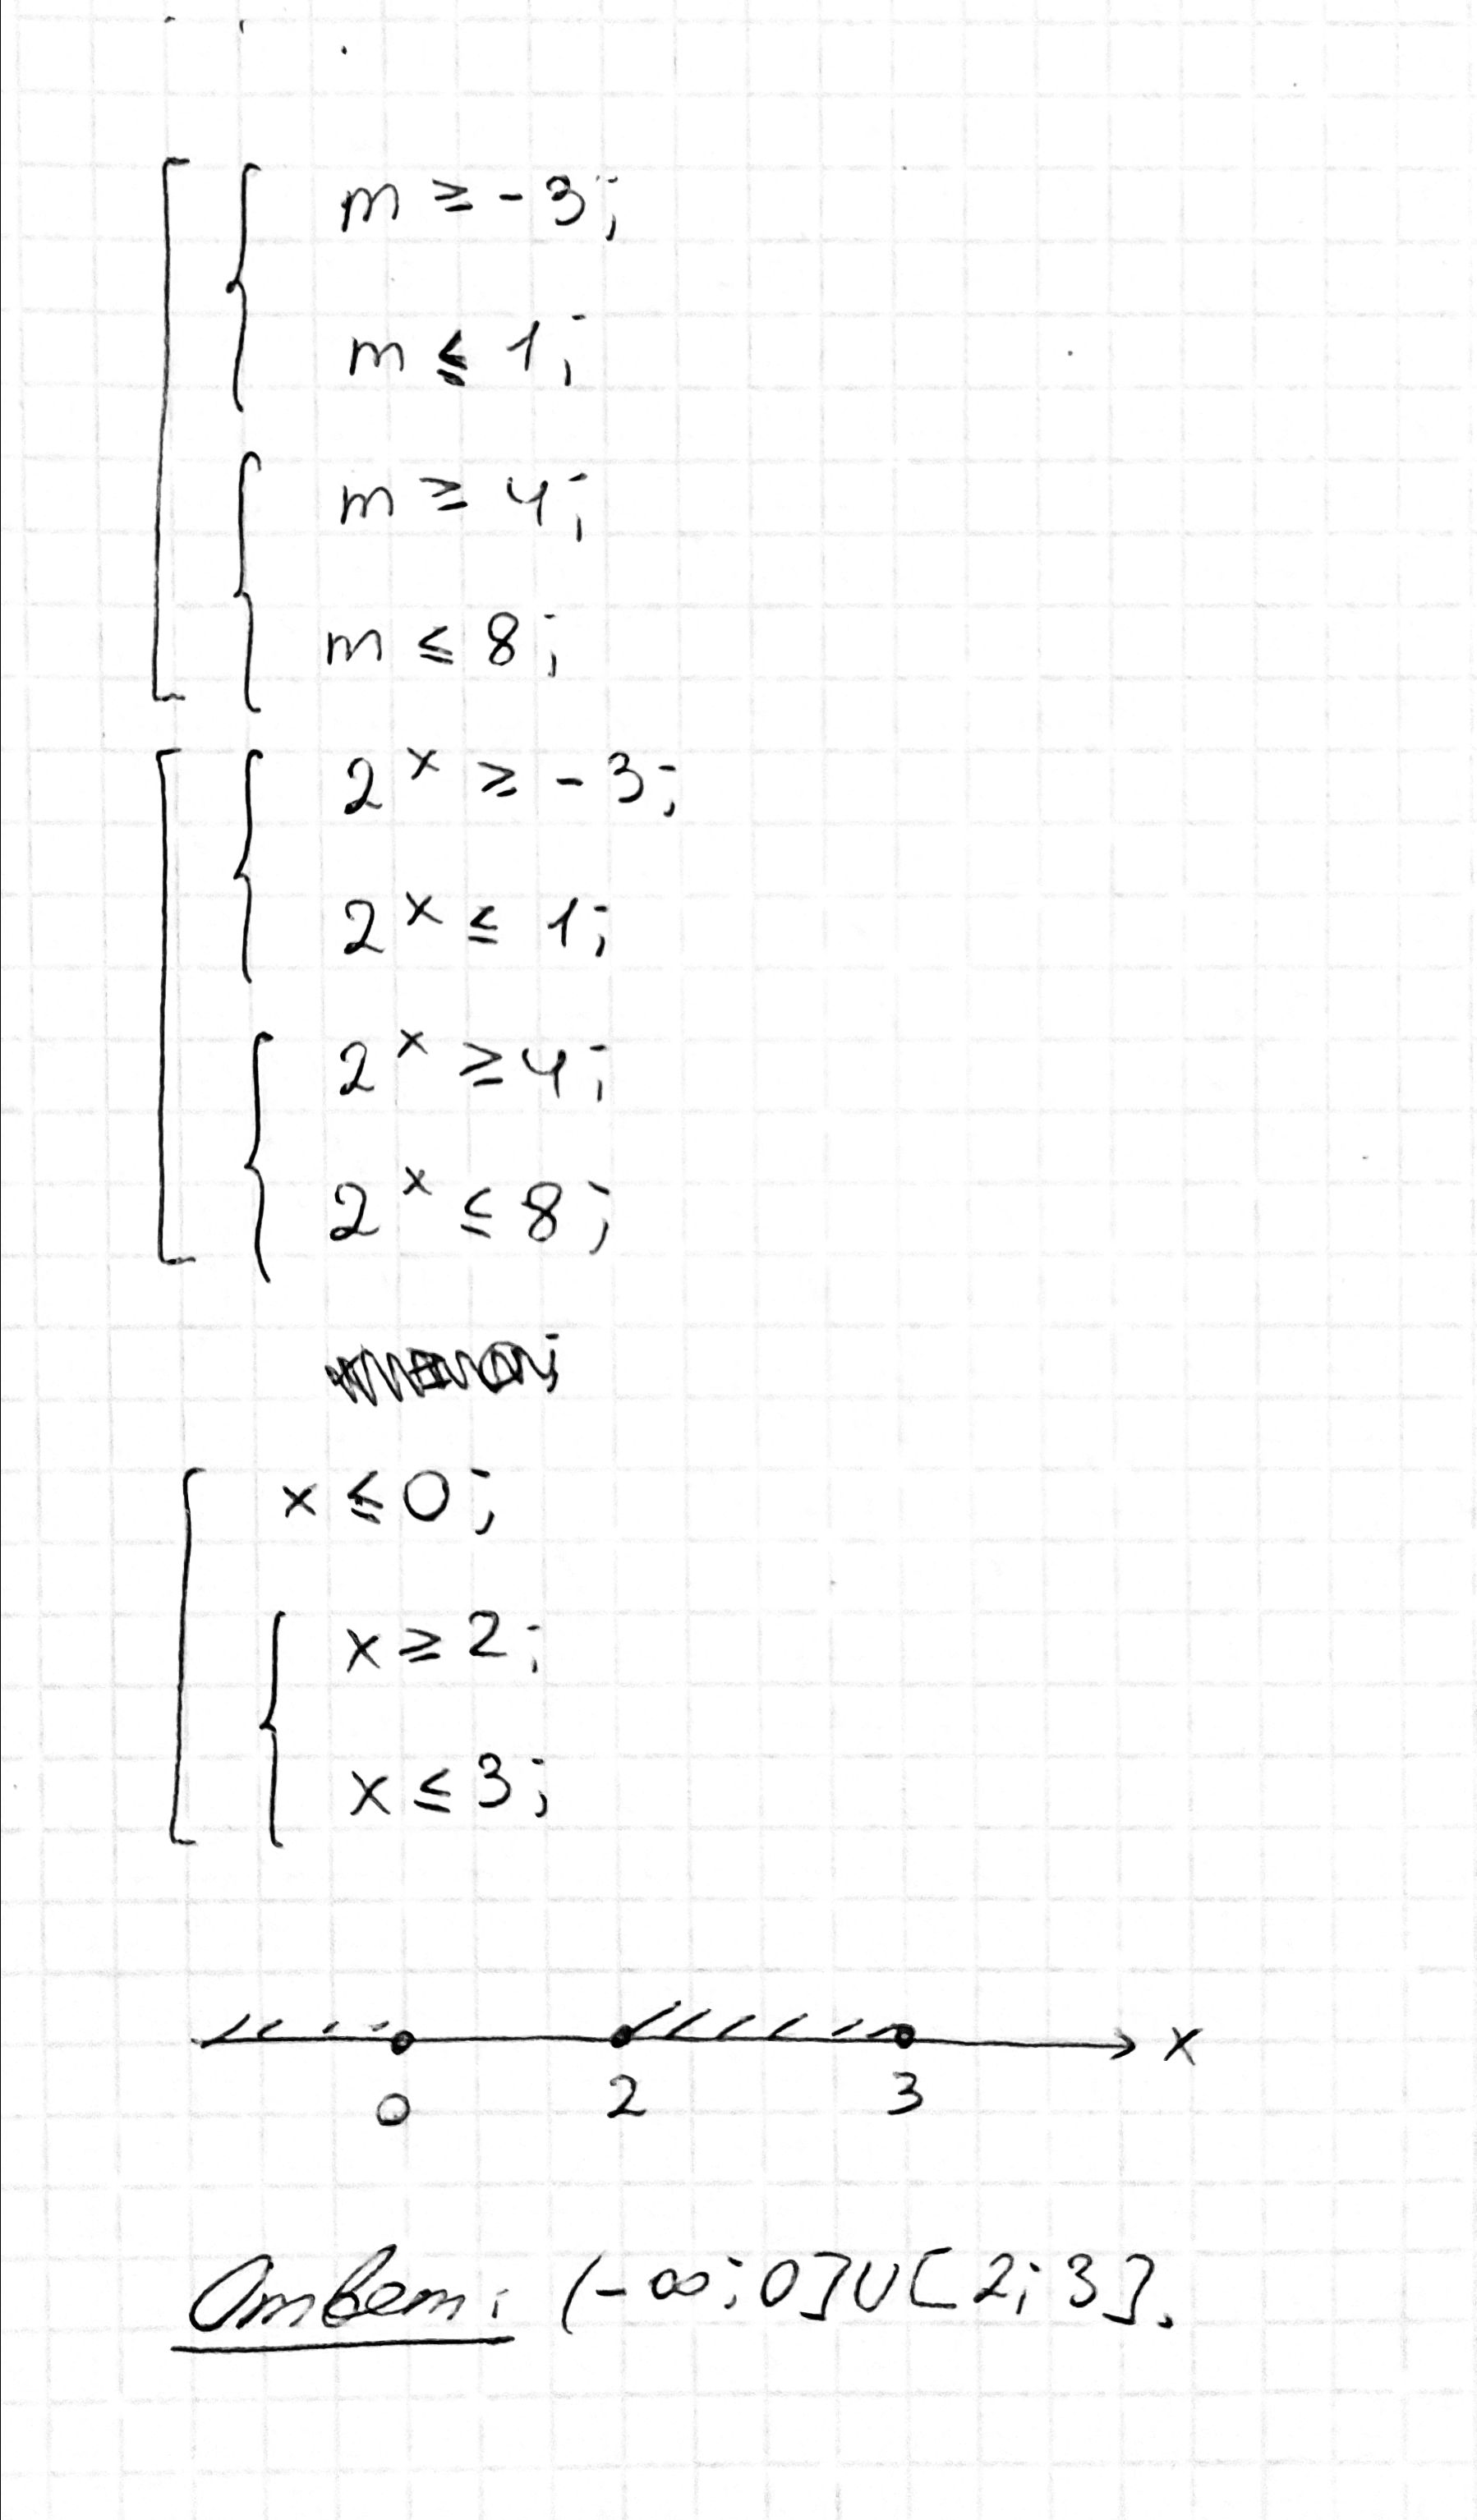 m ≥ -3;
m ≤ 1;
m ≥ 4;
m ≤ 8;
2^x ≥ -3;
2^x ≤ 1;
2^x ≥ 4;
2^x ≤ 8;
x ≤ 0;
x ≥ 2;
x ≤ 3;
x
0 2 3
Ответ: (-∞; 0]∪[2; 3].